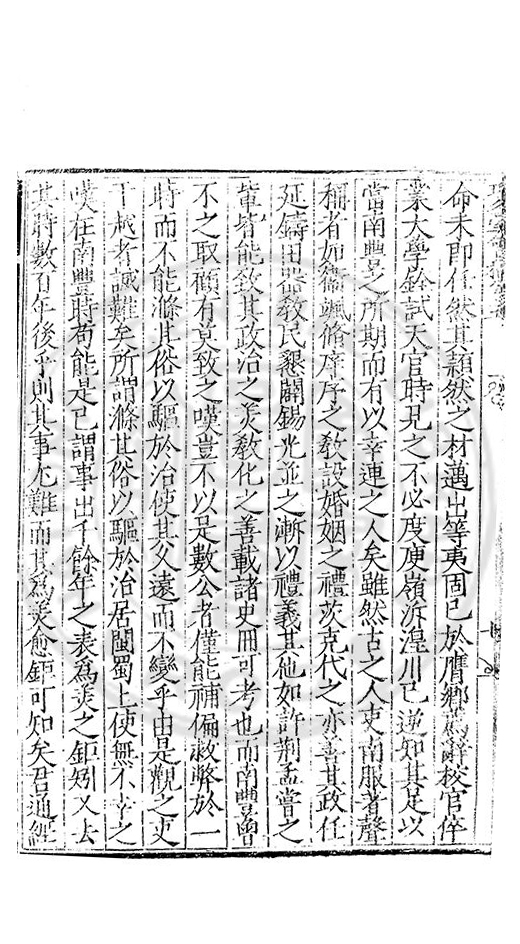 命未即任然其頴然之材邁出等夷固已於膺鄉薦辭校官倅
業大學銓試天官時見之不必度庾嶺泝湟川已逆知其足以
當南豊之所期而有以幸連之人矣雖然古之人吏南服著聲
稱者如衞颯脩庠序之敎設婚姻之禮茨充代之亦善其政任
延鑄田器敎民懇闢錫光並之漸以禮義其他如許荆孟嘗之
輩皆能致其政治之美敎化之善載諸史冊可考也而南豊曾
不之取顧有莫致之嘆豈不以是數公者僅能補偏救弊於一
時而不能滌其俗以驅於治使其父遠而不變乎由是觀之吏
于越者誠難矣所謂滌其俗以驅於治居閩蜀上使無不幸之
嘆在南豊時苟能是已謂事出千餘年之表爲美之鉅矧又去
其時數百年後乎則其事尤難而其爲美愈鉅可知矣君通經